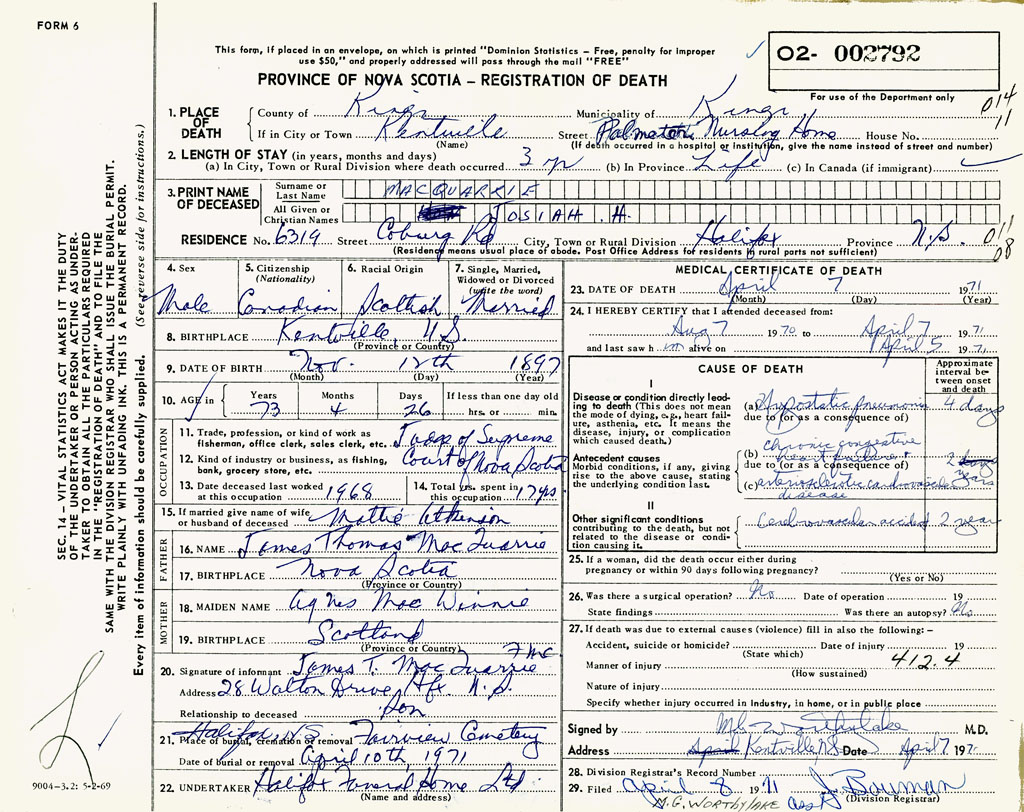 FORM 6
This form, if placed in an envelope, on which is printed "Dominion Statistics – Free, penalty for improper
use $50," and properly addressed will pass through the mail "FREE"
O2- 002792
PROVINCE OF NOVA SCOTIA – REGISTRATION OF DEATH
For use of the Department only
014
11
1. PLACE OF DEATH
County of Kings Municipality of Kings
If in City or Town Kentville Street Palmeter Nursing Home House No.
(Name) (If death occurred in a hospital or institution, give the name instead of street and number)
2. LENGTH OF STAY (in years, months and days)
(a) In City, Town or Rural Division where death occurred 3 yr (b) In Province Life (c) In Canada (if immigrant)
3. PRINT NAME OF DECEASED
Surname or Last Name MACQUARRIE
All Given or Christian Names JOSIAH . H.
RESIDENCE No. 6319 Street Coburg Rd City, Town or Rural Division Halifax Province N.S.
011
08
(Residence means usual place of abode. Post Office Address for residents in rural parts not sufficient)
4. Sex
Male
5. Citizenship
(Nationality)
Canadian
6. Racial Origin
Scottish
7. Single, Married,
Widowed or Divorced
(write the word)
Married
8. BIRTHPLACE Kentville, N.S.
(Province or Country)
9. DATE OF BIRTH Nov. 12th 1897
(Month) (Day) (Year)
10. AGE in
Years Months Days If less than one day old
73 4 26 hrs. or min.
OCCUPATION
11. Trade, profession, or kind of work as
fisherman, office clerk, sales clerk, etc. Judge of Supreme
12. Kind of industry or business, as fishing,
bank, grocery store, etc. Court of Nova Scotia
13. Date deceased last worked
at this occupation 1968
14. Total yrs. spent in
this occupation 17 yrs
15. If married give name of wife
or husband of deceased Mattie Atkinson
FATHER
16. NAME James Thomas MacQuarrie
17. BIRTHPLACE Nova Scotia
(Province or Country)
MOTHER
18. MAIDEN NAME Agnes MacWinnie
19. BIRTHPLACE Scotland
(Province or Country)
20. Signature of informant James T. MacQuarrie
Address 28 Walton Drive, Hfx. N.S.
Relationship to deceased Son
Halifax, N.S.
21. Place of burial, cremation or removal Fairview Cemetery
Date of burial or removal April 10th, 1971
22. UNDERTAKER Halifax Funeral Home Ltd
(Name and address)
MEDICAL CERTIFICATE OF DEATH
23. DATE OF DEATH April 7 1971
(Month) (Day) (Year)
24. I HEREBY CERTIFY that I attended deceased from:
Aug 7 1970 to April 7 1971
and last saw him alive on April 5 1971
CAUSE OF DEATH
Approximate
interval be-
tween onset
and death
I
Disease or condition directly lead-
ing to death (This does not mean
the mode of dying, e.g., heart fail-
ure, asthenia, etc. It means the
disease, injury, or complication
which caused death.)
(a) Hypostatic pneumonia 4 days
due to (or as a consequence of)
Antecedent causes
Morbid conditions, if any, giving
rise to the above cause, stating
the underlying condition last.
chronic congestive
(b) heart failure
due to (or as a consequence of)
2 years
(c) arteriosclerotic cardiovascular
disease
II
Other significant conditions
contributing to the death, but not
related to the disease or condi-
tion causing it.
Cerebrovascular accident 2 years
25. If a woman, did the death occur either during
pregnancy or within 90 days following pregnancy?
(Yes or No)
26. Was there a surgical operation? No Date of operation 19
State findings Was there an autopsy? No
27. If death was due to external causes (violence) fill in also the following: –
Accident, suicide or homicide? Date of injury 19
(State which)
412.4
Manner of injury
(How sustained)
Nature of injury
Specify whether injury occurred in Industry, in home, or in public place
Signed by M.G. Worthylake M.D.
Address Kentville NS Date April 7 1971
28. Division Registrar's Record Number
29. Filed April 8 1971 J. Bowman
Division Registrar
M.G. WORTHYLAKE
SEC. 14 – VITAL STATISTICS ACT MAKES IT THE DUTY
OF THE UNDERTAKER OR PERSON ACTING AS UNDER-
TAKER TO OBTAIN ALL THE PARTICULARS REQUIRED
IN THE "REGISTRATION OF DEATH" AND TO FILE THE
SAME WITH THE DIVISION REGISTRAR WHO SHALL ISSUE THE BURIAL PERMIT.
WRITE PLAINLY WITH UNFADING INK. THIS IS A PERMANENT RECORD.
Every item of information should be carefully supplied. (See reverse side for instructions.)
9004-3.2: 5-2-69